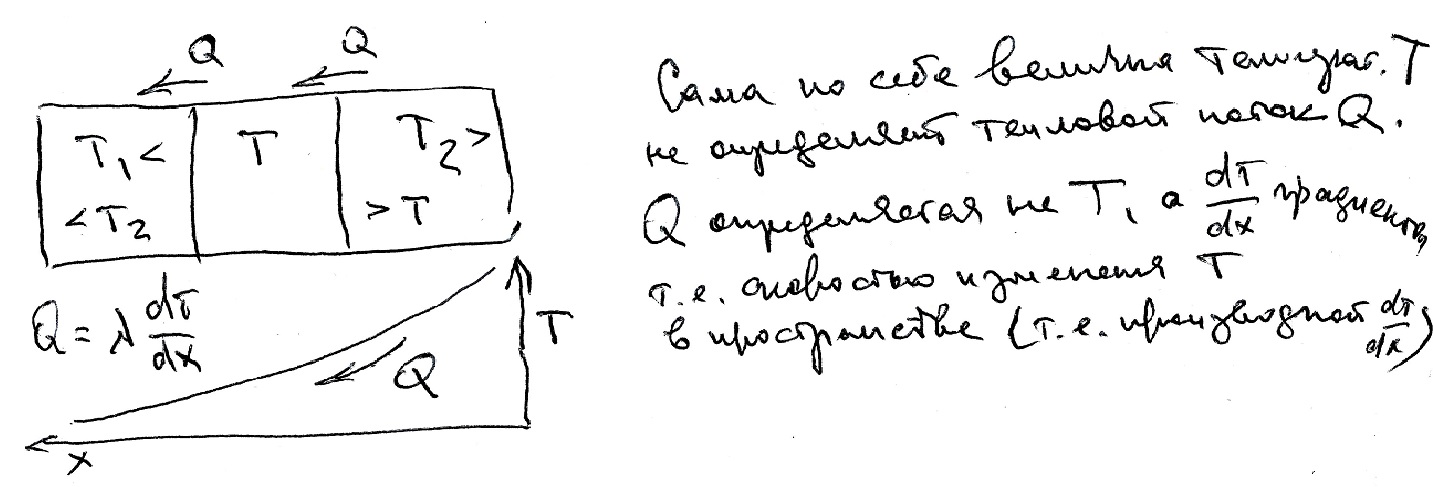 Q Q
T₁ < T T₂ >
< T₂ > T
Q = λ dT/dx
T
Q
x
Сама по себе величина температ. T
не определяет тепловой поток Q.
Q определяется не T, а dT/dx градиентом,
т.е. скоростью изменения T
в пространстве (т.е. производной dT/dx)